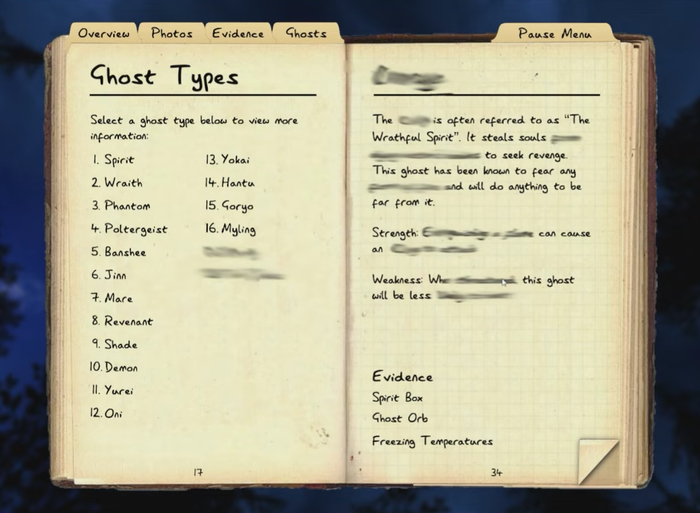 Overview Photos Evidence Ghosts
Pause Menu
Ghost Types
Select a ghost type below to view more
information:
1. Spirit
2. Wraith
3. Phantom
4. Poltergeist
5. Banshee
6. Jinn
7. Mare
8. Revenant
9. Shade
10. Demon
11. Yurei
12. Oni
13. Yokai
14. Hantu
15. Goryo
16. Myling
17
The is often referred to as "The
Wrathful Spirit". It steals souls
to seek revenge.
This ghost has been known to fear any
and will do anything to be
far from it.
Strength: can cause
an
Weakness: this ghost
will be less
Evidence
Spirit Box
Ghost Orb
Freezing Temperatures
34